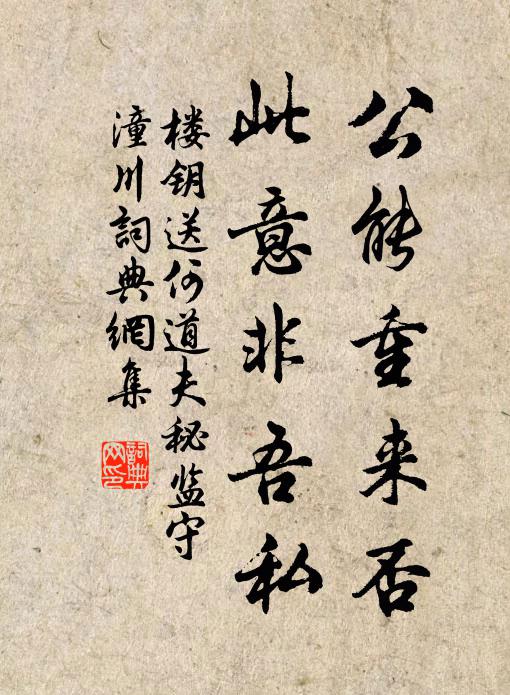 公能重来否
此意非吾私
楼钥送何道夫秘监守
潼川詞典網集
詞典网印